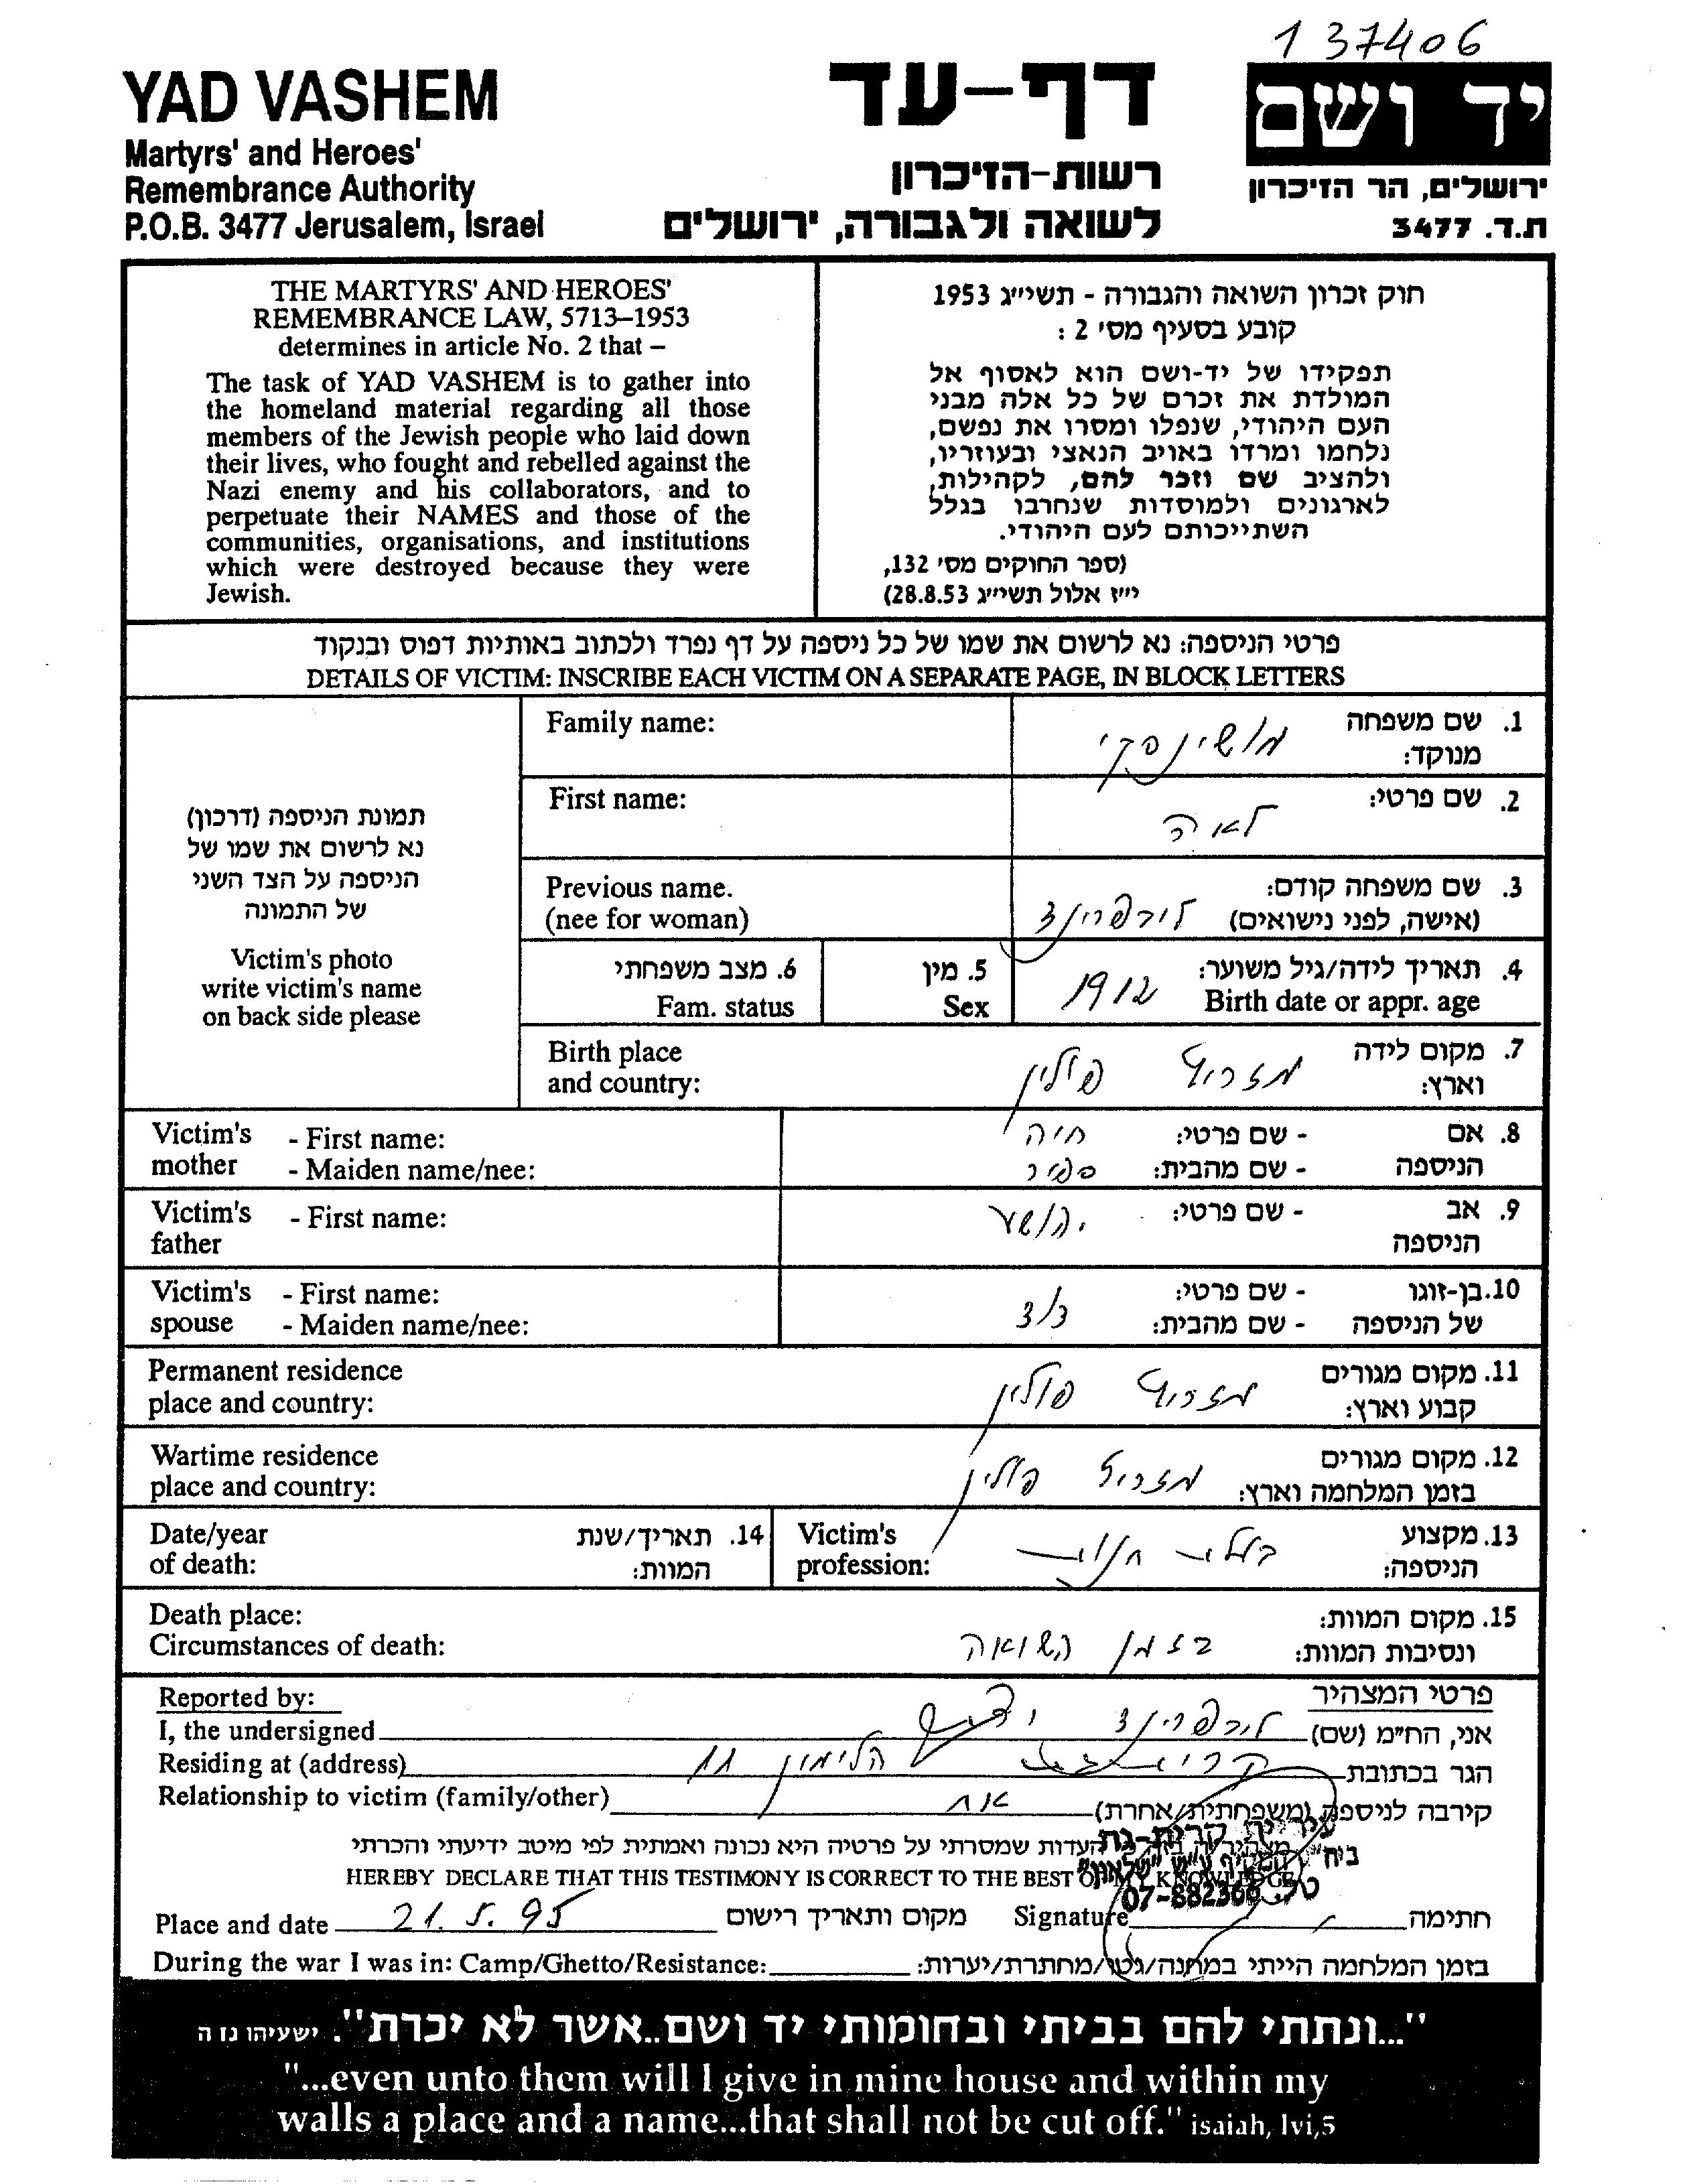 137406
YAD VASHEM
Martyrs' and Heroes'
Remembrance Authority
P.O.B. 3477 Jerusalem, Israel
דף-עד
רשות-הזיכרון
לשואה ולגבורה, ירושלים
יד ושם
ירושלים, הר הזיכרון
ת.ד. 3477
THE MARTYRS' AND HEROES'
REMEMBRANCE LAW, 5713–1953
determines in article No. 2 that –
The task of YAD VASHEM is to gather into
the homeland material regarding all those
members of the Jewish people who laid down
their lives, who fought and rebelled against the
Nazi enemy and his collaborators, and to
perpetuate their NAMES and those of the
communities, organisations, and institutions
which were destroyed because they were
Jewish.
חוק זכרון השואה והגבורה - תשי״ג 1953
קובע בסעיף מס׳ 2 :
תפקידו של יד-ושם הוא לאסוף אל
המולדת את זכרם של כל אלה מבני
העם היהודי, שנפלו ומסרו את נפשם,
נלחמו ומרדו באויב הנאצי ובעוזריו,
ולהציב שם וזכר להם, לקהילות,
לארגונים ולמוסדות שנחרבו בגלל
השתייכותם לעם היהודי.
(ספר החוקים מס׳ 132,
י״ז אלול תשי״ג 28.8.53)
פרטי הניספה: נא לרשום את שמו של כל ניספה על דף נפרד ולכתוב באותיות דפוס ובנקוד
DETAILS OF VICTIM: INSCRIBE EACH VICTIM ON A SEPARATE PAGE, IN BLOCK LETTERS
תמונת הניספה (דרכון)
נא לרשום את שמו של
הניספה על הצד השני
של התמונה
Victim's photo
write victim's name
on back side please
1. שם משפחה
מנוקד:
Family name:
מושינסקי
2. שם פרטי:
First name:
לאה
3. שם משפחה קודם:
(אישה, לפני נישואים)
Previous name.
(nee for woman)
4. תאריך לידה/גיל משוער:
Birth date or appr. age
1912
5. מין
Sex
6. מצב משפחתי
Fam. status
7. מקום לידה
וארץ:
Birth place
and country:
פולין
8. אם
הניספה
- שם פרטי:
- שם מהבית:
חיה
ספיר
Victim's mother
- First name:
- Maiden name/nee:
9. אב
הניספה
- שם פרטי:
יהושע
Victim's father
- First name:
10. בן-זוגו
של הניספה
- שם פרטי:
- שם מהבית:
Victim's spouse
- First name:
- Maiden name/nee:
11. מקום מגורים
קבוע וארץ:
פולין
Permanent residence
place and country:
12. מקום מגורים
בזמן המלחמה וארץ:
פולין
Wartime residence
place and country:
13. מקצוע
הניספה:
בעלת חנות
Victim's
profession:
14. תאריך/שנת
המוות:
Date/year
of death:
15. מקום המוות:
ונסיבות המוות:
בזמן השואה
Death place:
Circumstances of death:
פרטי המצהיר
Reported by:
אני, הח״מ (שם)
I, the undersigned
הגר בכתובת
הלימון 11
Residing at (address)
קירבה לניספה (משפחתית/אחרת)
אח
Relationship to victim (family/other)
העדות שמסרתי על פרטיה היא נכונה ואמתית לפי מיטב ידיעתי והכרתי
HEREBY DECLARE THAT THIS TESTIMONY IS CORRECT TO THE BEST OF MY KNOWLEDGE
עיריית קרית-גת
07-882366
Place and date
21.5.95
מקום ותאריך רישום
Signature
חתימה
During the war I was in: Camp/Ghetto/Resistance:
בזמן המלחמה הייתי במחנה/גטו/מחתרת/יערות:
"...ונתתי להם בביתי ובחומותי יד ושם..אשר לא יכרת". ישעיהו נו ה
"...even unto them will I give in mine house and within my
walls a place and a name...that shall not be cut off." isaiah, lvi,5